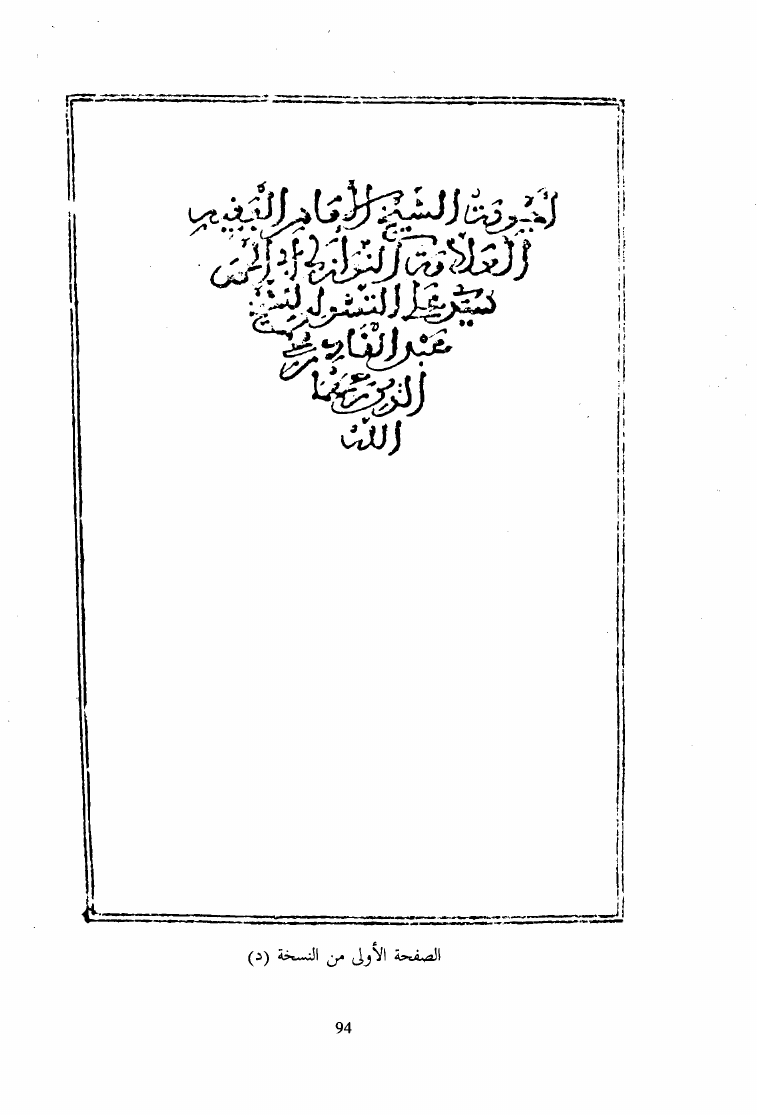 أجوبة الشيخ الإمام الفقيه
العلامة النوازلي أبي الحسن
سيدي علي التسولي للشيخ
عبد القادر محي
الدين رحمهما
الله
الصفحة الأولى من النسخة (د)
94